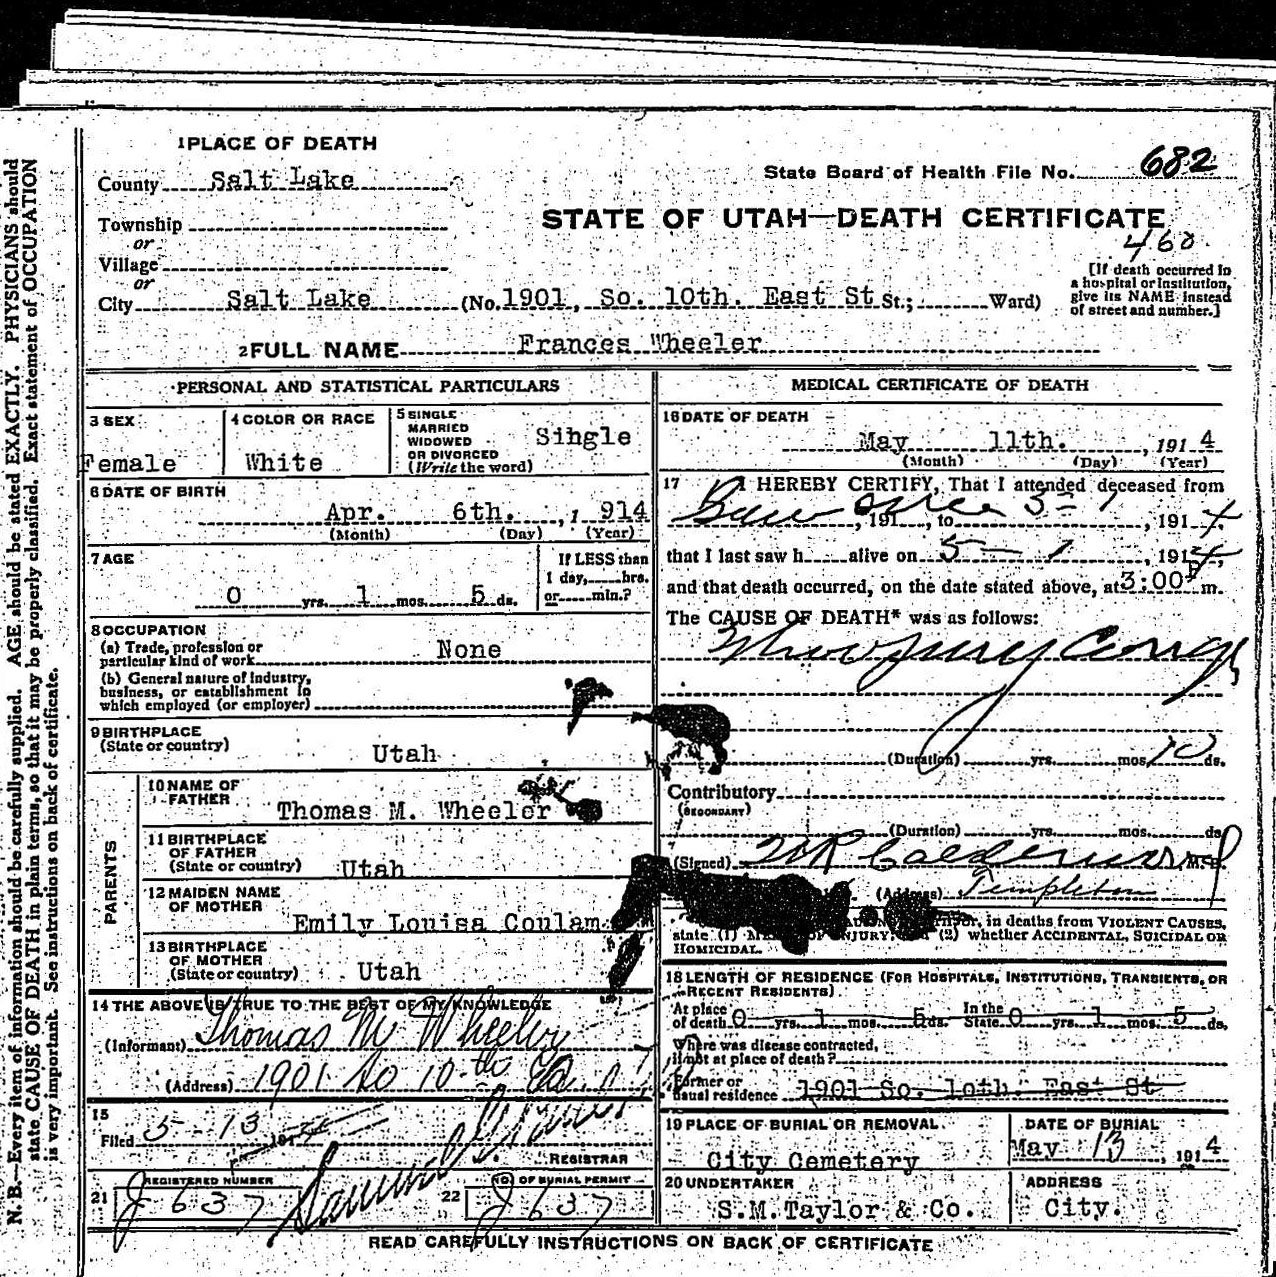 1 PLACE OF DEATH
County Salt Lake
State Board of Health File No. 682
Township
STATE OF UTAH—DEATH CERTIFICATE
or
460
Village
or
[If death occurred in a hospital or institution, give its NAME instead of street and number.]
City Salt Lake (No. 1901, So. 10th. East St St.; Ward)
2 FULL NAME Frances Wheeler
PERSONAL AND STATISTICAL PARTICULARS
3 SEX
Female
4 COLOR OR RACE
White
5 SINGLE
MARRIED
WIDOWED
OR DIVORCED
(Write the word)
Single
6 DATE OF BIRTH
Apr. 6th., 1 914
(Month) (Day) (Year)
7 AGE
0 yrs. 1 mos. 5 ds.
If LESS than
1 day, hrs.
or min.?
8 OCCUPATION
(a) Trade, profession or
particular kind of work None
(b) General nature of industry,
business, or establishment in
which employed (or employer)
9 BIRTHPLACE
(State or country) Utah
PARENTS
10 NAME OF
FATHER
Thomas M. Wheeler
11 BIRTHPLACE
OF FATHER
(State or country) Utah
12 MAIDEN NAME
OF MOTHER
Emily Louisa Coulam
13 BIRTHPLACE
OF MOTHER
(State or country) Utah
14 THE ABOVE IS TRUE TO THE BEST OF MY KNOWLEDGE
(Informant) Thomas M Wheeler
(Address) 1901 So 10th Ea
15
Filed 5-13 191 4
REGISTRAR
21 REGISTERED NUMBER
J 637
22 NO. OF BURIAL PERMIT
J 637
MEDICAL CERTIFICATE OF DEATH
16 DATE OF DEATH
May 11th., 191 4
(Month) (Day) (Year)
17 I HEREBY CERTIFY, That I attended deceased from
once 5-1, 191 , to , 191 4.
that I last saw h alive on 5-1, 191 4,
and that death occurred, on the date stated above, at 3:00 P m.
The CAUSE OF DEATH* was as follows:
Whooping Cough
(Duration) yrs. mos. 10 ds.
Contributory
(SECONDARY)
(Duration) yrs. mos. ds.
(Signed) M.D.
(Address) Templeton
in deaths from VIOLENT CAUSES,
state (1) OF INJURY; (2) whether ACCIDENTAL, SUICIDAL OR
HOMICIDAL.
18 LENGTH OF RESIDENCE (FOR HOSPITALS, INSTITUTIONS, TRANSIENTS, OR
RECENT RESIDENTS)
At place
of death 0 yrs. 1 mos. 5 ds. In the
State 0 yrs. 1 mos. 5 ds.
Where was disease contracted,
if not at place of death?
Former or
usual residence 1901 So. 10th. East St
19 PLACE OF BURIAL OR REMOVAL
City Cemetery
DATE OF BURIAL
May 13, 191 4
20 UNDERTAKER
S.M.Taylor & Co.
ADDRESS
City.
READ CAREFULLY INSTRUCTIONS ON BACK OF CERTIFICATE
N. B.—Every item of information should be carefully supplied. AGE should be stated EXACTLY. PHYSICIANS should
state CAUSE OF DEATH in plain terms, so that it may be properly classified. Exact statement of OCCUPATION
is very important. See instructions on back of certificate.